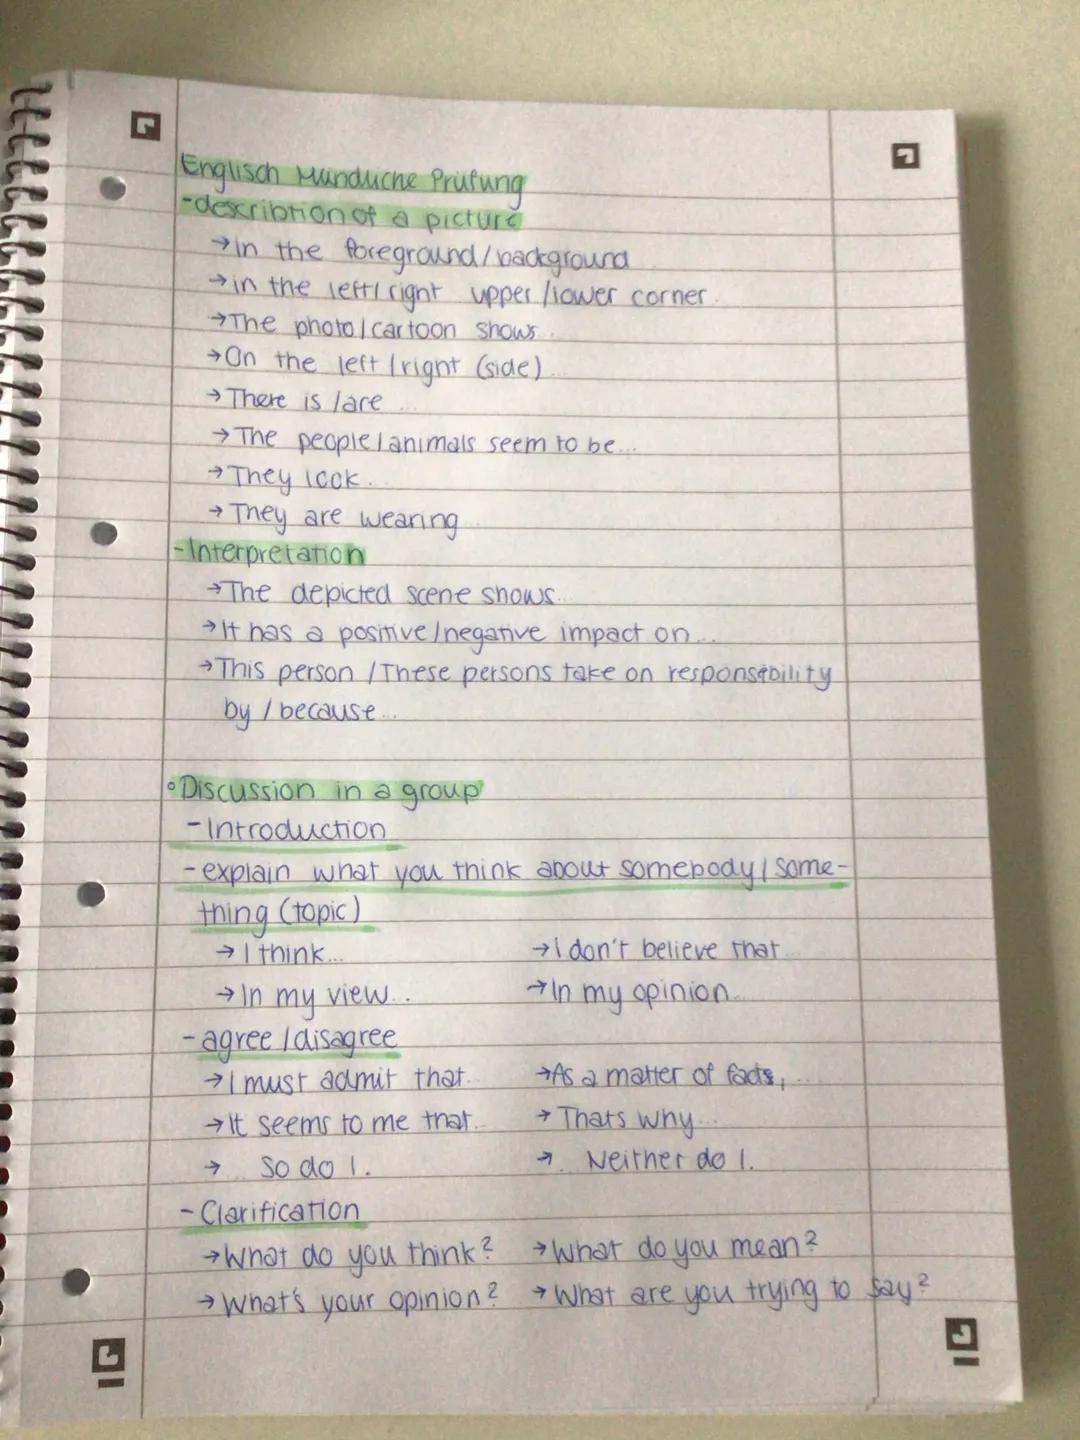 Englisch Mündliche Prüfung
-description of a picture
→in the foreground/background
→in the left/right upper/lower corner.
→The photo/cartoon shows...
→On the left/right (side)...
→There is/are ...
→The people/animals seem to be...
→They look...
→They are wearing...
-Interpretation
→The depicted scene shows...
→It has a positive/negative impact on...
→This person /These persons take on responsibility
by / because...
°Discussion in a group
-Introduction
-explain what you think about somebody/some-
thing (topic)
→I think... →I don't believe that...
→In my view... →In my opinion...
-agree/disagree
→I must admit that... →As a matter of facts, ...
→It seems to me that... →Thats why...
→... So do I. →... Neither do I.
-Clarification
→What do you think? →What do you mean?
→What's your opinion? →What are you trying to say?